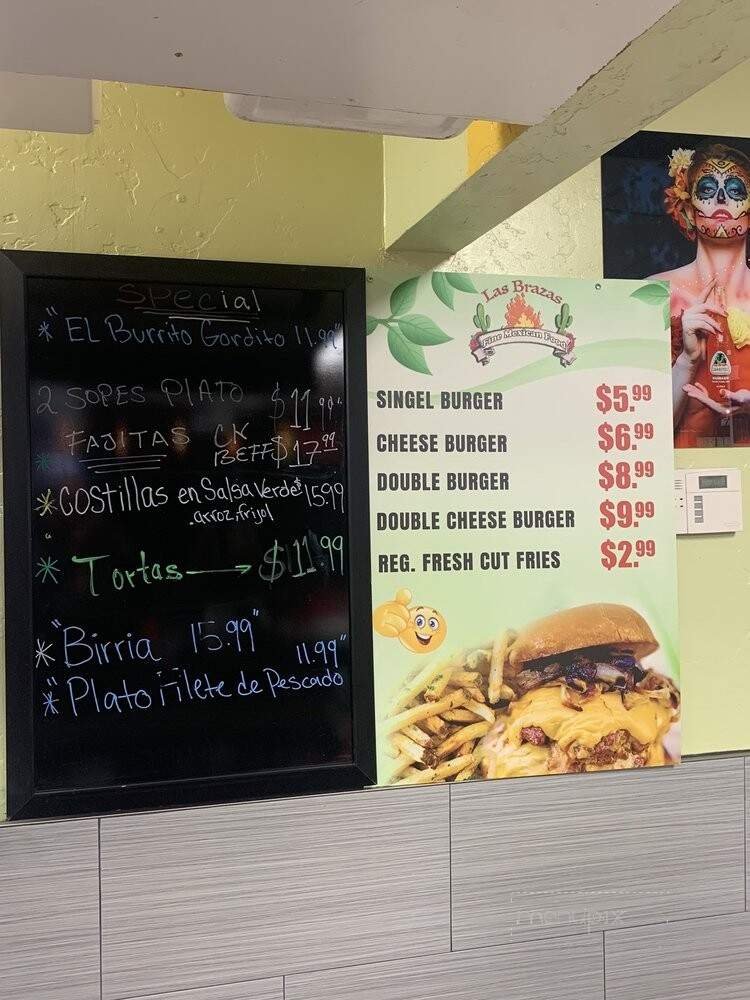 SPecial
* "EL Burrito Gordito 11.99"
2 SOPES PLATO $11.99"
* FAJITAS CK
BEFF $17.99
* COStillas en Salsa Verde $15.99
.arroz, frijol
* Tortas → $11.99
* "Birria 15.99"
11.99"
* "Plato Filete de Pescado
Las Brazas
Fine Mexican Food
SINGEL BURGER $5.99
CHEESE BURGER $6.99
DOUBLE BURGER $8.99
DOUBLE CHEESE BURGER $9.99
REG. FRESH CUT FRIES $2.99
menupix